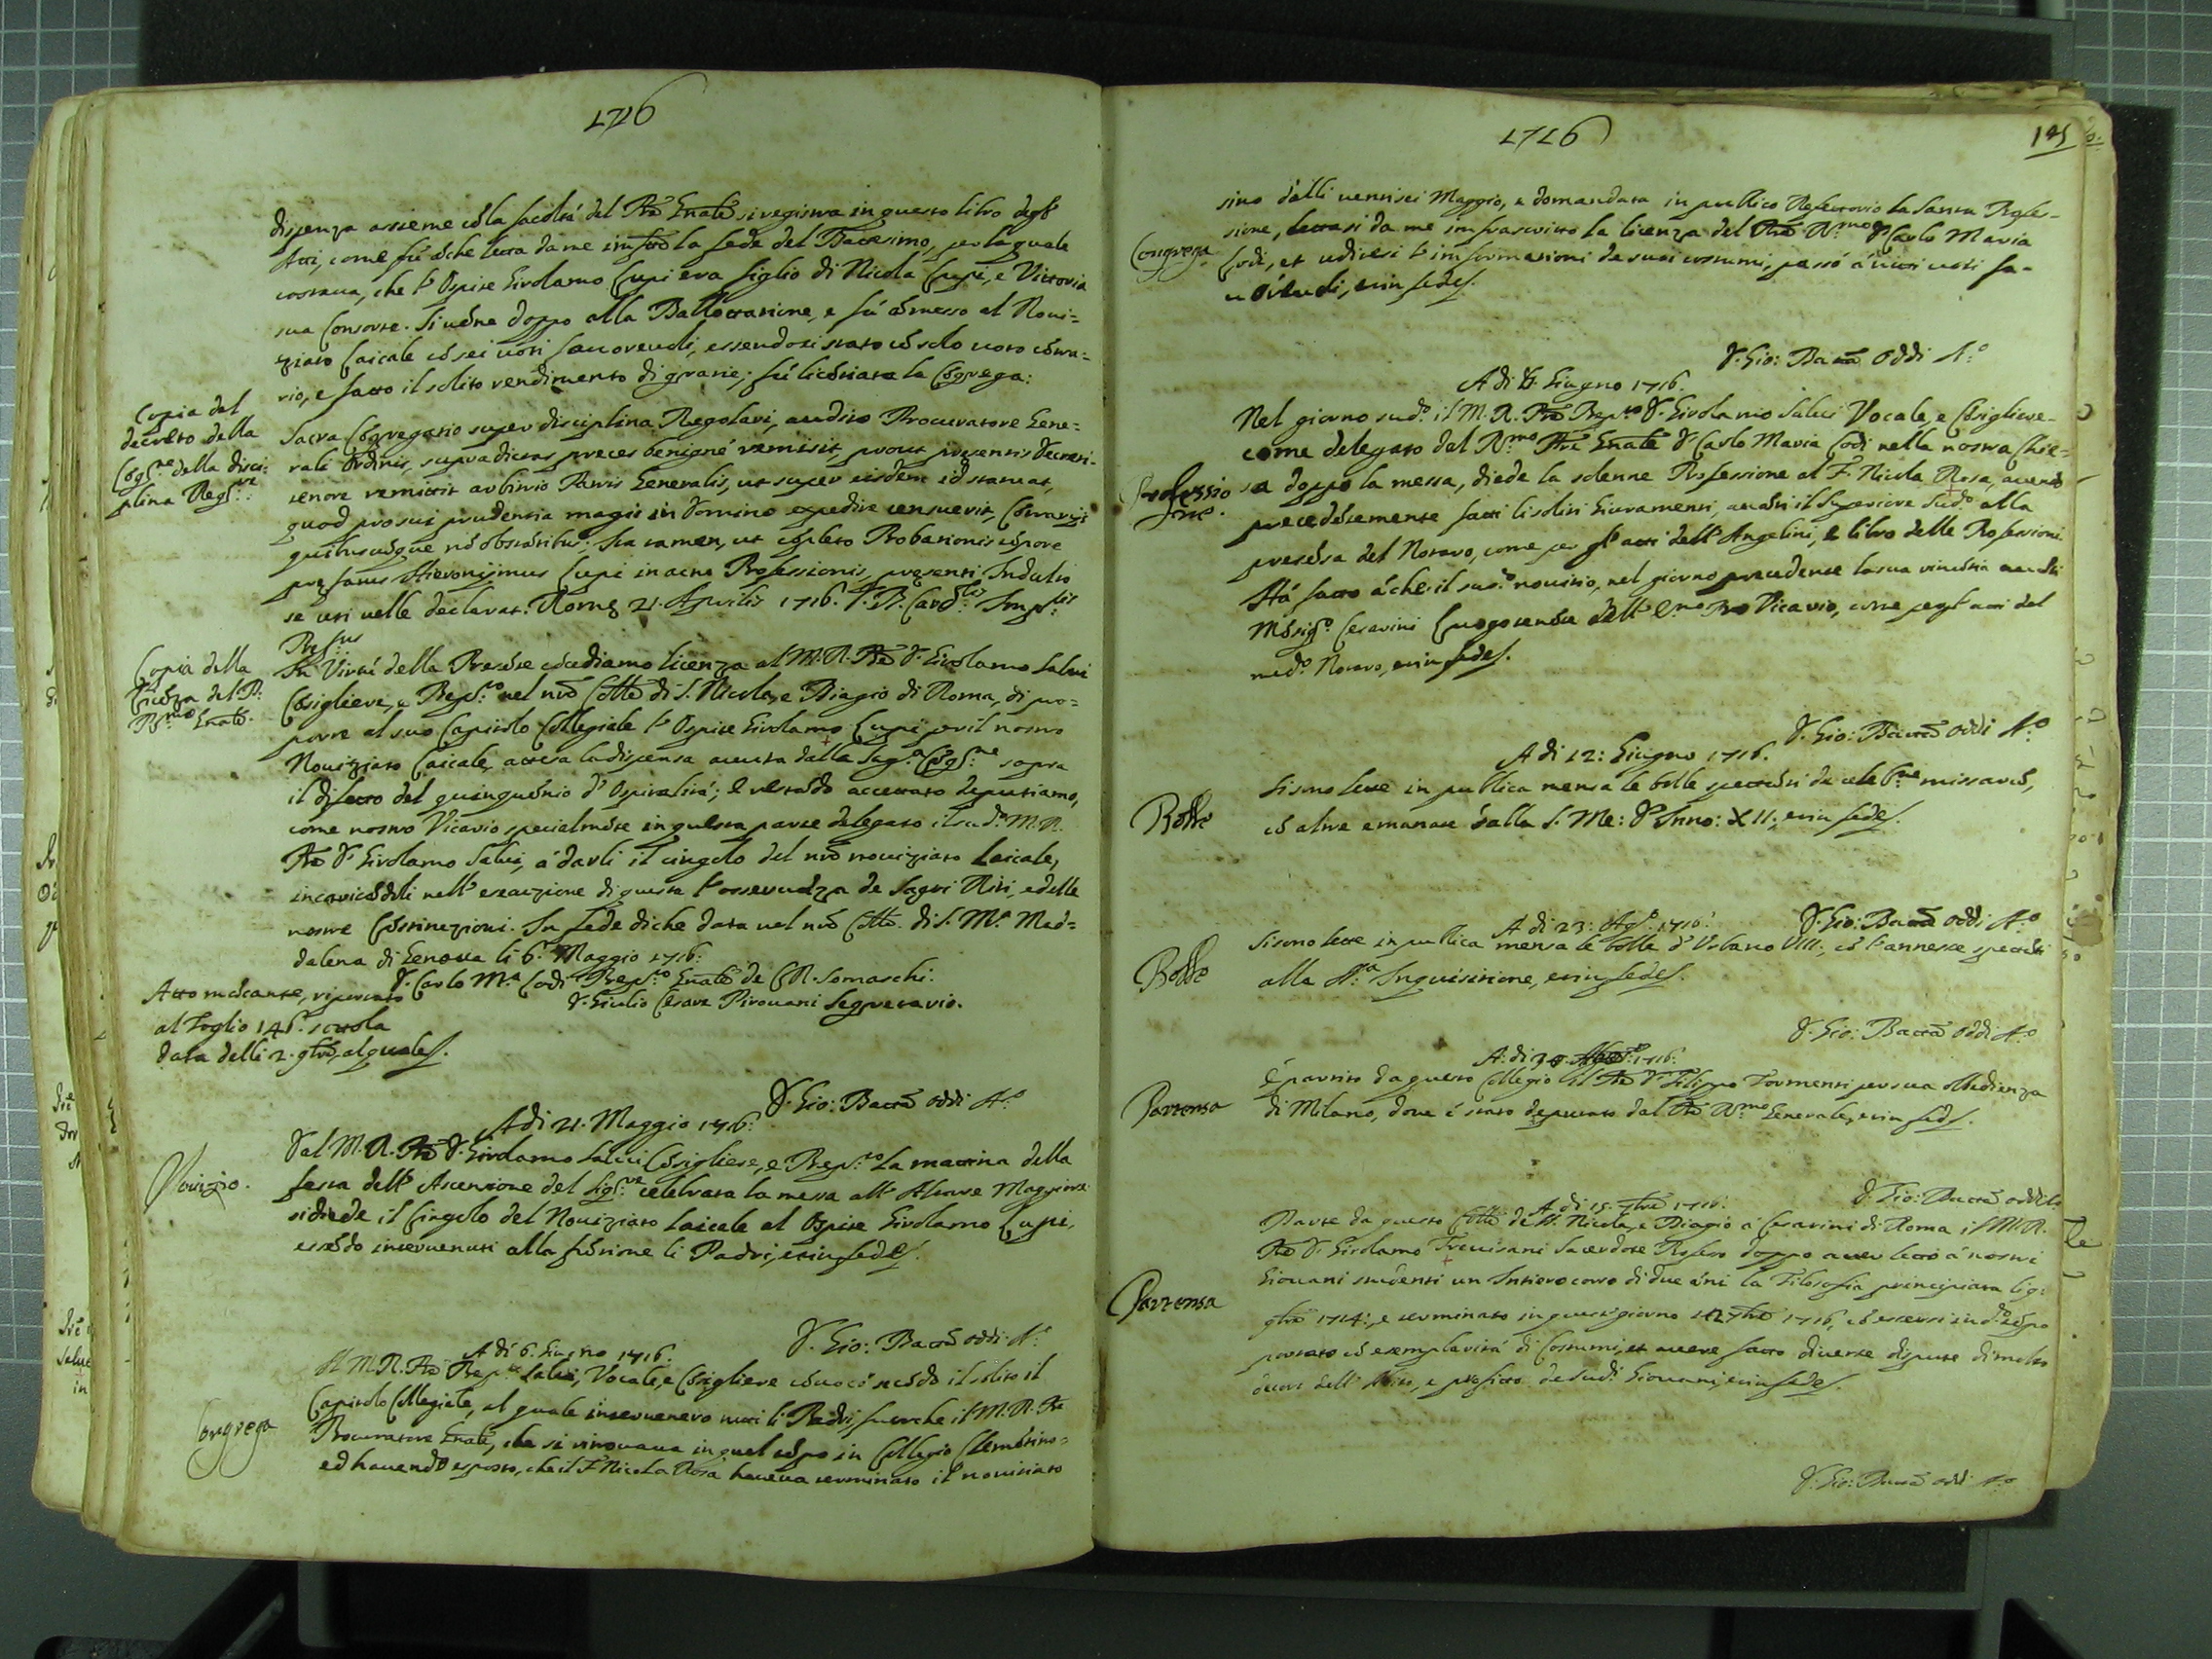 1716
dispenza assieme cõ la facoltà del Prẽ Gnãle si registra in questo libro degl'
Atti, come fù ãche letta da me infrõ la fede del Battesimo, per la quale
costaua, che l'Ospite Girolamo Lupi era figlio di Nicola Lupi, e Vittoria
sua Consorte. Si uẽne doppo alla Ballottatione, e fù ãmesso al Noui=
ziato Laicale cõ sei uoti fauoreuoli, essendosi stato cõ solo uoto cõtra=
rio, e fatto il solito rendimento di gratie; fù licẽtiata la Cõgrega:
Copia del
decreto della
Cõg.ne della disci:
plina Reg.re:
Sacra Cõgregatio super disciplina Regolari, audito Procuratore Gene=
rali Ordinis, supradictas preces benignè remisit, prout presentis Decreti
tenore remittit arbitrio Patris Generalis, ut super eisdem id statuat,
quod pro sui prudentia magis in Domino expedire censuerit, Cõtrarijs
quibuscũque nõ obstãtibus; Ita tamen, ut cõpleto Probationis tẽpore
prefatus Hieronijmus Lupi in actu Professionis, presenti Indulto
se uti uelle declarat. Rome 21. Aprilis 1716. F. B. Card.lis Imp.lis
Pref.tus
Copia della
licẽza del P.
R.mo Gnãle.
In Virtù della Presẽte cõcediamo licenza al M. R. Prẽ D. Girolamo Salui
Cõsigliere, e Prep.to nel nrõ Collõ di S. Nicola, e Biagio di Roma, di pro=
porre al suo Capitolo Collegiale l'Ospite Girolamo Lupi per il nostro
Nouiziato Laicale, attesa la dispensa auuta dalla Sag.a Cõg.ne sopra
il difetto del quinquẽnio d'Ospitalità; e restãdo accettato deputiamo,
come nostro Vicario specialmẽte in questa parte delegato il sud.o M. R.
Prẽ D. Girolamo Salui, à darli il cingolo del nrõ nouiziato Laicale,
incaricãdoli nell'esecuzione di questa l'osseruãza de Sagri Riti, e delle
nostre Cõstituzioni. In fede di che data nel nrõ Collõ. di S. M.a Mad=
dalena di Genoua li 6. Maggio 1716.
D. Carlo M.a Lodi Prep.to Gnãle de C. R. Somaschi.
D. Giulio Cesare Pirouani Segretario.
Atto mãcante, riportato
al Foglio 146. sotto la
data delli 2. 9brẽ, al quale f.
D. Gio: Battã Oddi A.o
Adi 21. Maggio 1716.
Nouizio.
Dal M. R. Prẽ D. Girolamo Salui Cõsigliere, e Prep.to la mattina della
festa dell'Ascensione del Sig.re celebrata la messa all'Altare Maggiore
si diede il Cingolo del Nouiziato Laicale al Ospite Girolamo Lupi,
essẽdo interuenuti alla fũtione li Padri, et in fede f.
D. Gio: Battã Oddi A.o
A di 6. Giugno 1716.
Congrega
Il M. R. Prẽ Prep.to Salui, Vocale, e Cõsigliere cõuocò secõdo il solito il
Capitolo Collegiale, al quale interuenero tutti li Padri, fuorche il M. R. Prẽ
Procuratore Gnãle, che si ritrouaua in quel tẽpo in Collegio Clemẽtino=
ed hauendo esposto, che il F. Nicola Rosa haueua terminato il nouitiato
1716
145
Congrega
sino dalli uentisei Maggio, e domandata in publico Refettorio la Santa Profes-
sione, lettasi da me infrascritto la licenza del Prẽ R.mo D. Carlo Maria
Lodi, et uditesi l'informationi de suoi costumi, passò à tutti uoti fa-
uoreuoli, et in fede f.
D. Gio: Battã Oddi A.o
A di Giugno 1716.
Professio
ne.
Nel giorno sud.o il M. R. Prẽ Prep.to D. Girolamo Salui Vocale, e Cõsigliere-
come delegato dal R.mo Prẽ Gnãle D. Carlo Maria Lodi nella nostra Chie-
sa doppo la messa, diede la solenne Professione al F. Nicola Rosa, auendo
precedẽtemente fatti li soliti Giuramenti, auãti il Superiore sud.o alla
presẽza del Notaro, come per gl'atti dell'Angelini, e libro delle Professioni.
Hà fatto ãche il sud.o nouitio, nel giorno precedente la sua rinũtia auãti
Mõsig.r Cesarini Luogotenẽte dell'E.mo Vicario, come per gl'atti del
med.o Notaro, et in fede f.
D. Gio: Battã Oddi A.o
A di 12: Giugno 1716.
Bolle
Si sono lette in publica mensa le bolle spettãti da celeb.ne missarũ,
cõ altre emanate dalla S. Me: D'Inno: XII; et in fede f.
D. Gio: Battã Oddi A.o
A di 23: Ag.o 1716.
Bolle
Si sono lette in publica mensa le bolle d'Urbano VIII, cõ l'annesse spettãti
alla S.a Inquisitione, et in fede f.
D. Gio: Battã Oddi A.o
A: di 1716.
Partenza
È partito da questo Collegio il Prẽ D. Filippo Tormenti per sua obbedienza
di Milano, doue è stato deputato dal Prẽ R.mo Generale, et in fede f.
D. Gio: Battã Oddi A.o
A di 15. 7brẽ 1716.
Partenza
Parte da questo Collõ de SS. Nicola, e Biagio à Cesarini di Roma il M. R.
Prẽ D. Girolamo Treuisani Sacerdote Professo doppo auer letto à nostri
Giouani studenti un Intiero corso di due ãni la Filosofia principiata li 9:
9brẽ 1714:, e terminato in questo giorno 7brẽ 1716, cõ essersi in d.o tẽpo
portato cõ esemplarità di Costumi, et auere fatto diuerse dispute di molto
decoro dell'Abito, e profitto de sud.i Giouani, et in fede f.
D. Gio: Battã Oddi A.o